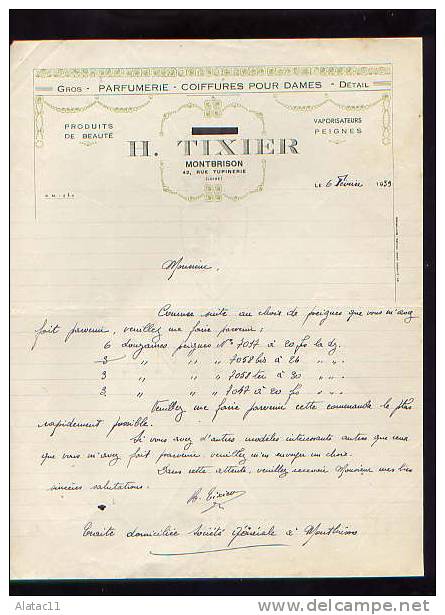 Gros - PARFUMERIE - COIFFURES POUR DAMES - Détail
PRODUITS
DE BEAUTÉ
VAPORISATEURS
PEIGNES
H. TIXIER
MONTBRISON
42, RUE TUPINERIE
(LOIRE)
LE 6 Février 1939
Monsieur,
Comme suite au choix de peignes que vous m'avez
fait parvenir, veuillez me faire parvenir :
6 douzaines peignes N° 7017 à 20 frs la dz.
3 " " " 7058 bis à 26 " " .
3 " " " 7058 ter à 30 " " .
3 " " " 7047 à 20 frs " " .
Veuillez me faire parvenir cette commande le plus
rapidement possible.
Si vous avez d'autres modèles intéressants autres que ceux
que vous m'avez fait parvenir, veuillez m'en envoyer un choix.
Dans cette attente, veuillez recevoir Monsieur mes bien
sincères salutations.
H. Tixier
Traite domiciliée Société Générale à Montbrison
Posted by
Alatac11
http://www.delcampe.net